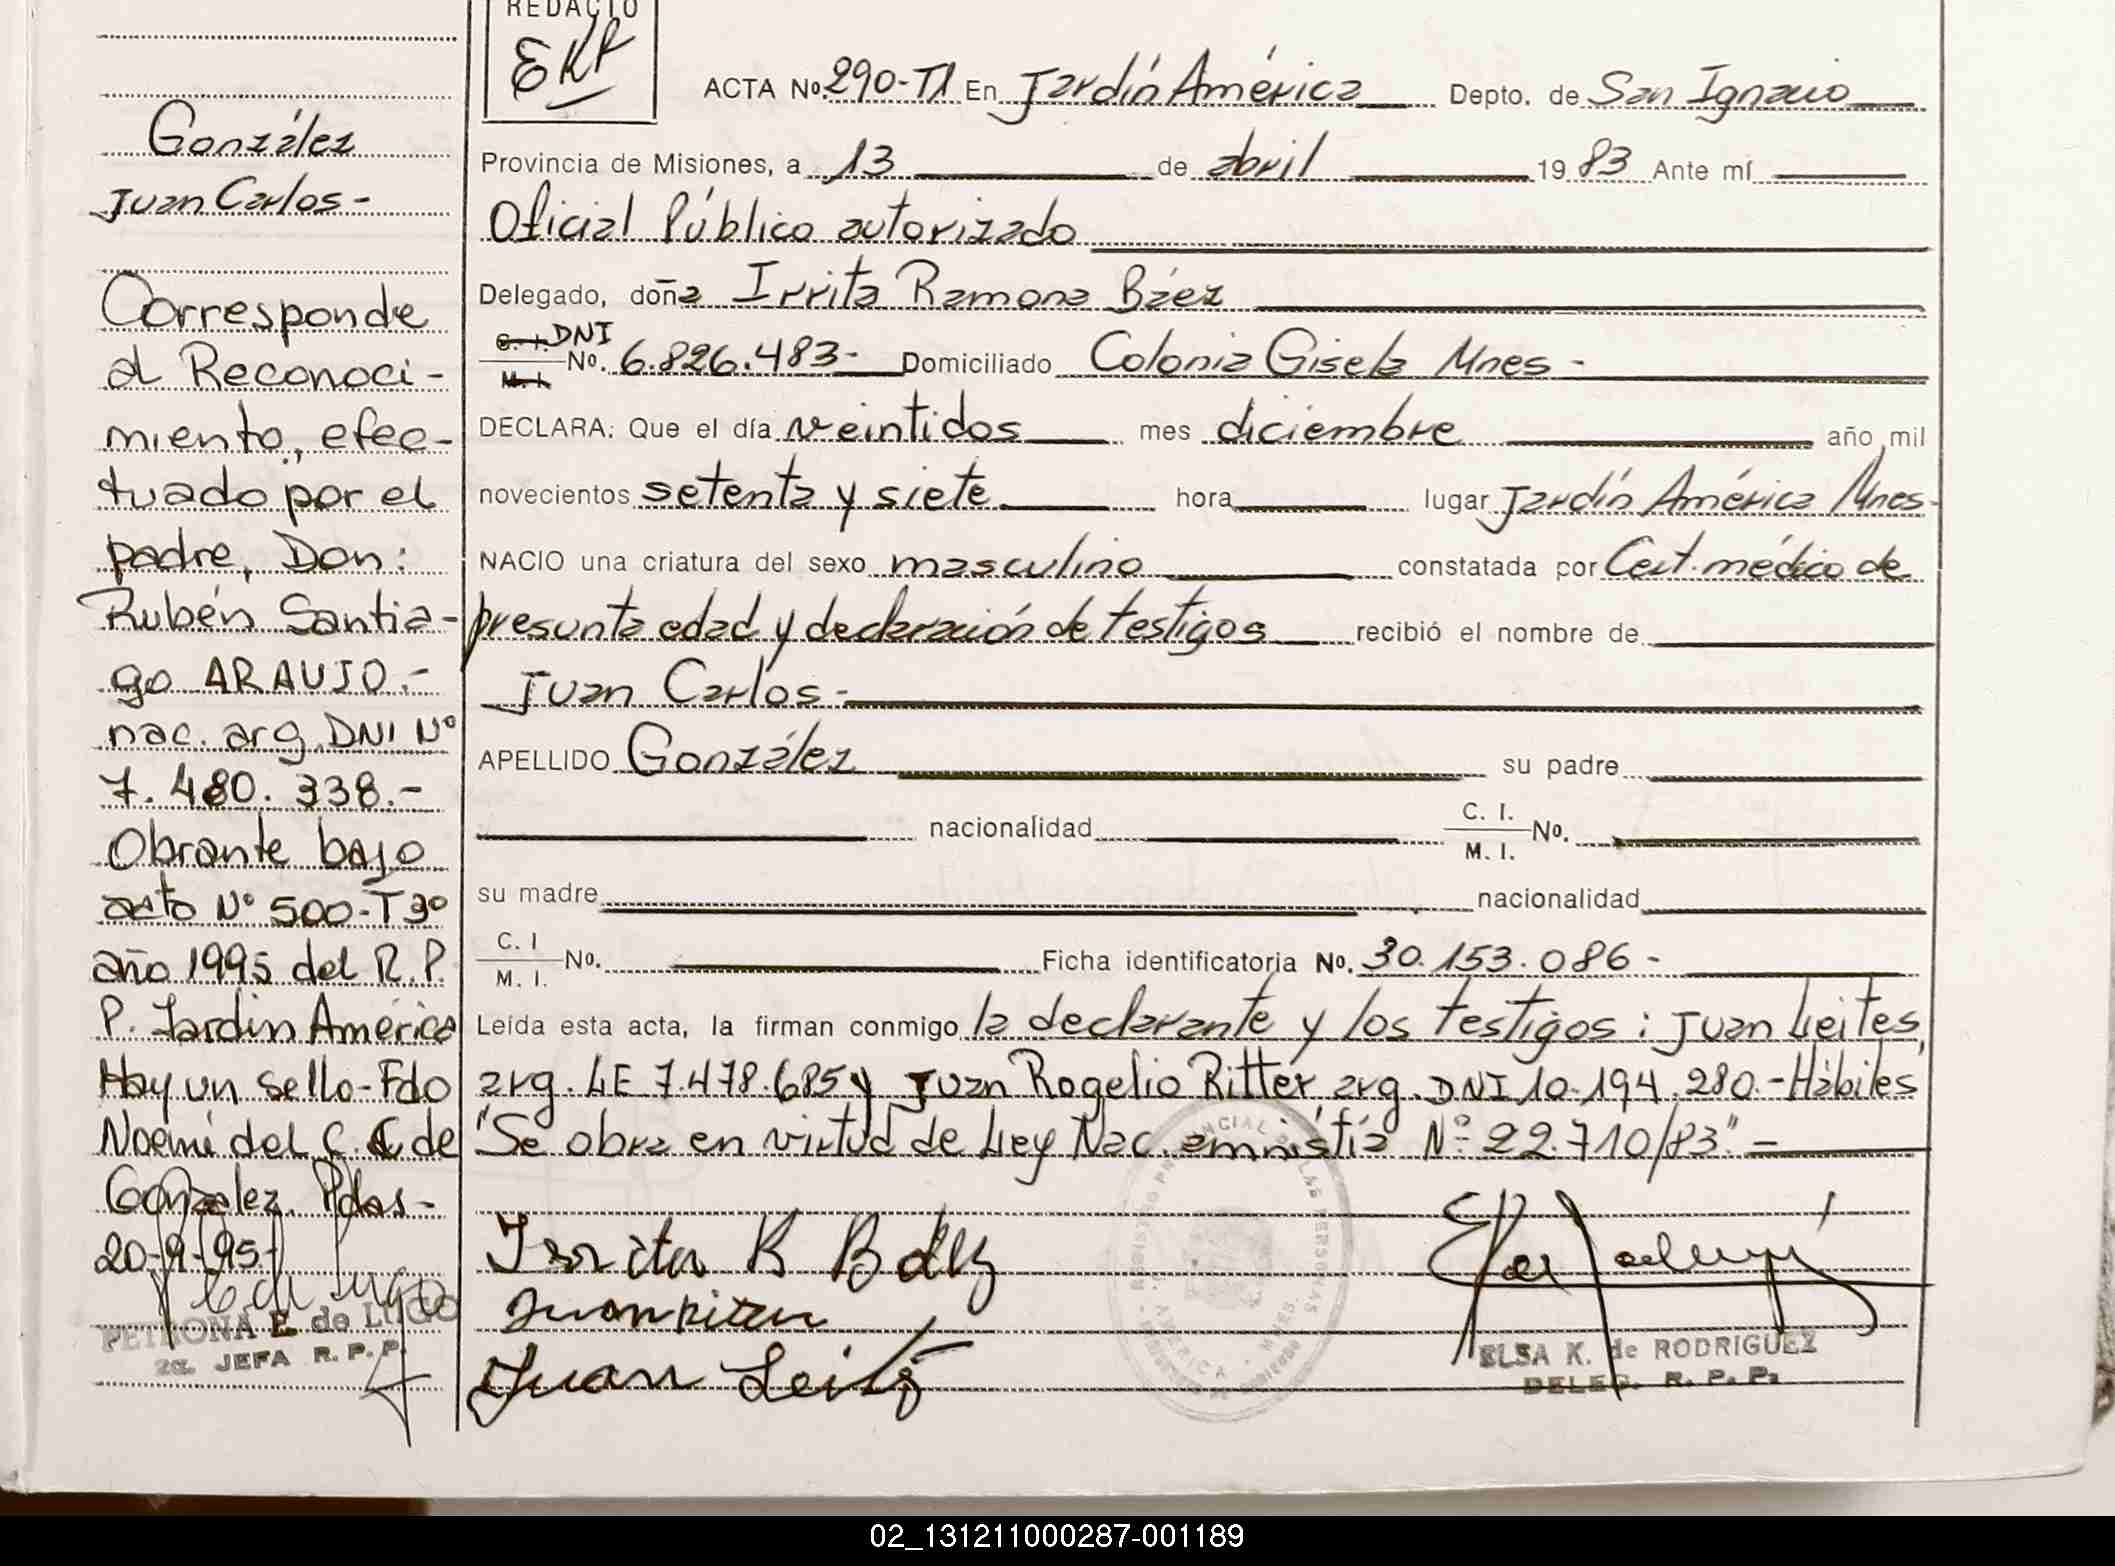 REDACTO
EKR
ACTA No. 290-T1 En Jardín América Depto. de San Ignacio
Provincia de Misiones, a 13 de abril 1983 Ante mí
Oficial Público autorizado
Delegado, doña Irrita Ramona Báez
C. I. DNI
M. I. No. 6.826.483- Domiciliado Colonia Gisela Mnes-
DECLARA: Que el día veintidos mes diciembre año mil
novecientos setenta y siete hora lugar Jardín América Mnes-
NACIO una criatura del sexo masculino constatada por Cert. médico de
presunta edad y declaración de testigos recibió el nombre de
Juan Carlos-
APELLIDO González su padre
nacionalidad C. I. M. I. No.
su madre nacionalidad
C. I M. I. No. Ficha identificatoria No. 30.153.086-
Leída esta acta, la firman conmigo la declarante y los testigos: Juan Leites,
arg. LE 7.478.685 y Juan Rogelio Ritter, arg. DNI 10.194.280.-Hábiles
"Se obra en virtud de Ley Nac. amnistía Nº 22.710/83"-
Irrita R Báez
Juan Leites
ELSA K. de RODRIGUEZ
DELEG. R. P. P.
González
Juan Carlos-
Corresponde
al Reconoci-
miento, efec-
tuado por el
padre, Don:
Rubén Santia-
go ARAUJO.-
nac. arg. DNI Nº
7.480.338.-
Obrante bajo
acta Nº 500-T3º
año 1995 del R.P.
P. Jardín América
Hay un sello-Fdo
Noemí del C. C de
González. Pdas-
20-9-95-
PETRONA E. de LUGO
2a. JEFA R. P. P.
02_131211000287-001189